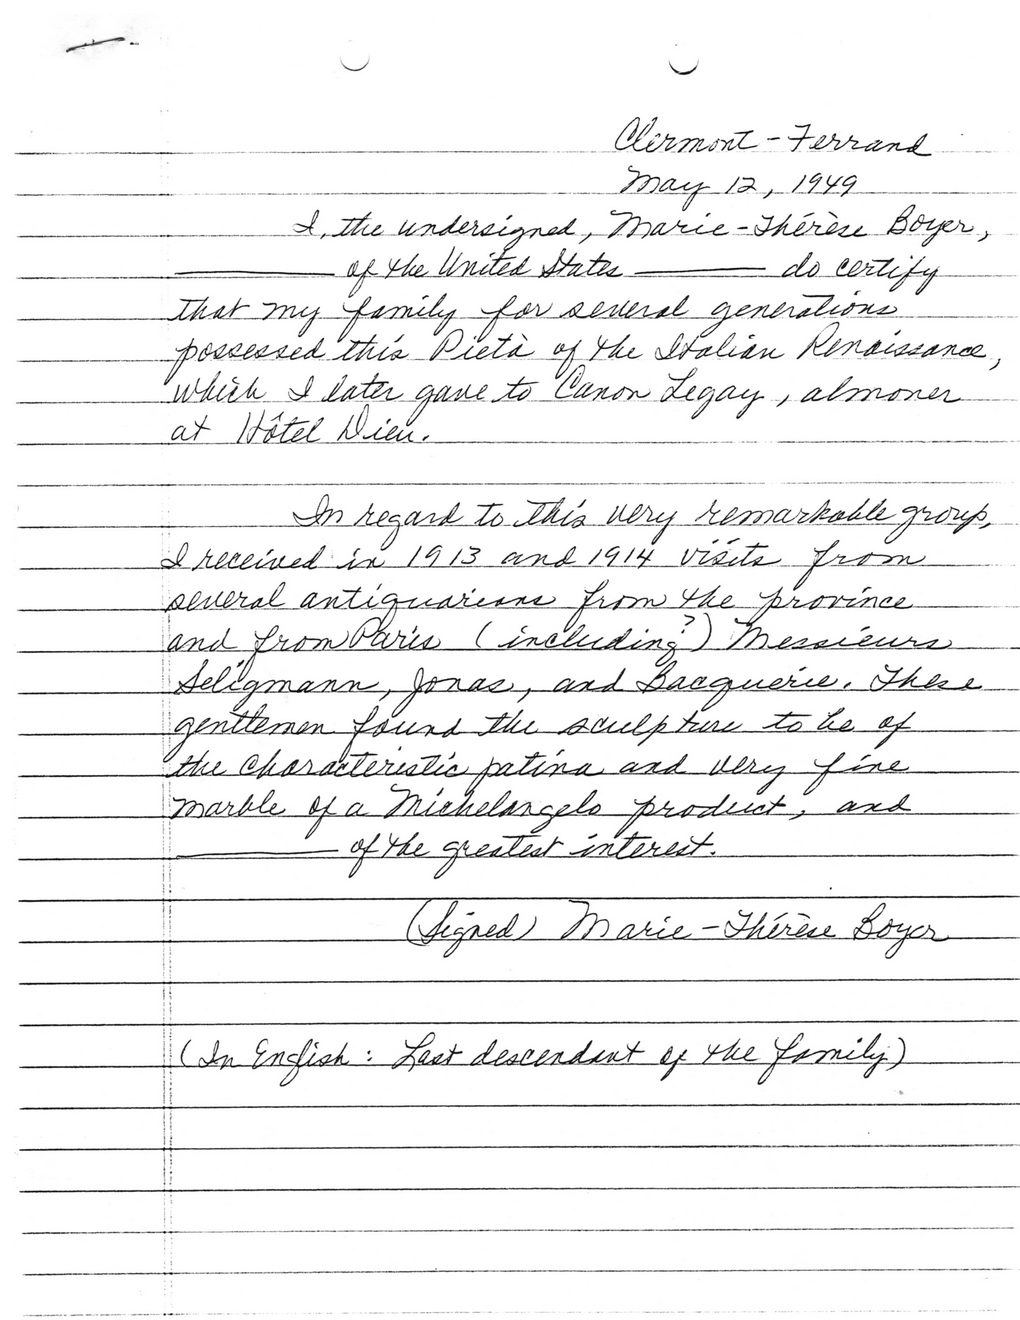 Clermont-Ferrand
May 12, 1949
I, the undersigned, Marie-Thérèse Boyer,
________ of the United States ________ do certify
that my family for several generations
possessed this Pietà of the Italian Renaissance,
which I later gave to Canon Legay, almoner
at Hôtel Dieu.
In regard to this very remarkable group,
I received in 1913 and 1914 visits from
several antiquarians from the province
and from Paris (including?) Messieurs
Seligmann, Jonas, and Bacquerie. These
gentlemen found the sculpture to be of
the characteristic patina and very fine
marble of a Michelangelo product, and
________ of the greatest interest.
(Signed) Marie-Thérèse Boyer
(In English: Last descendant of the family)